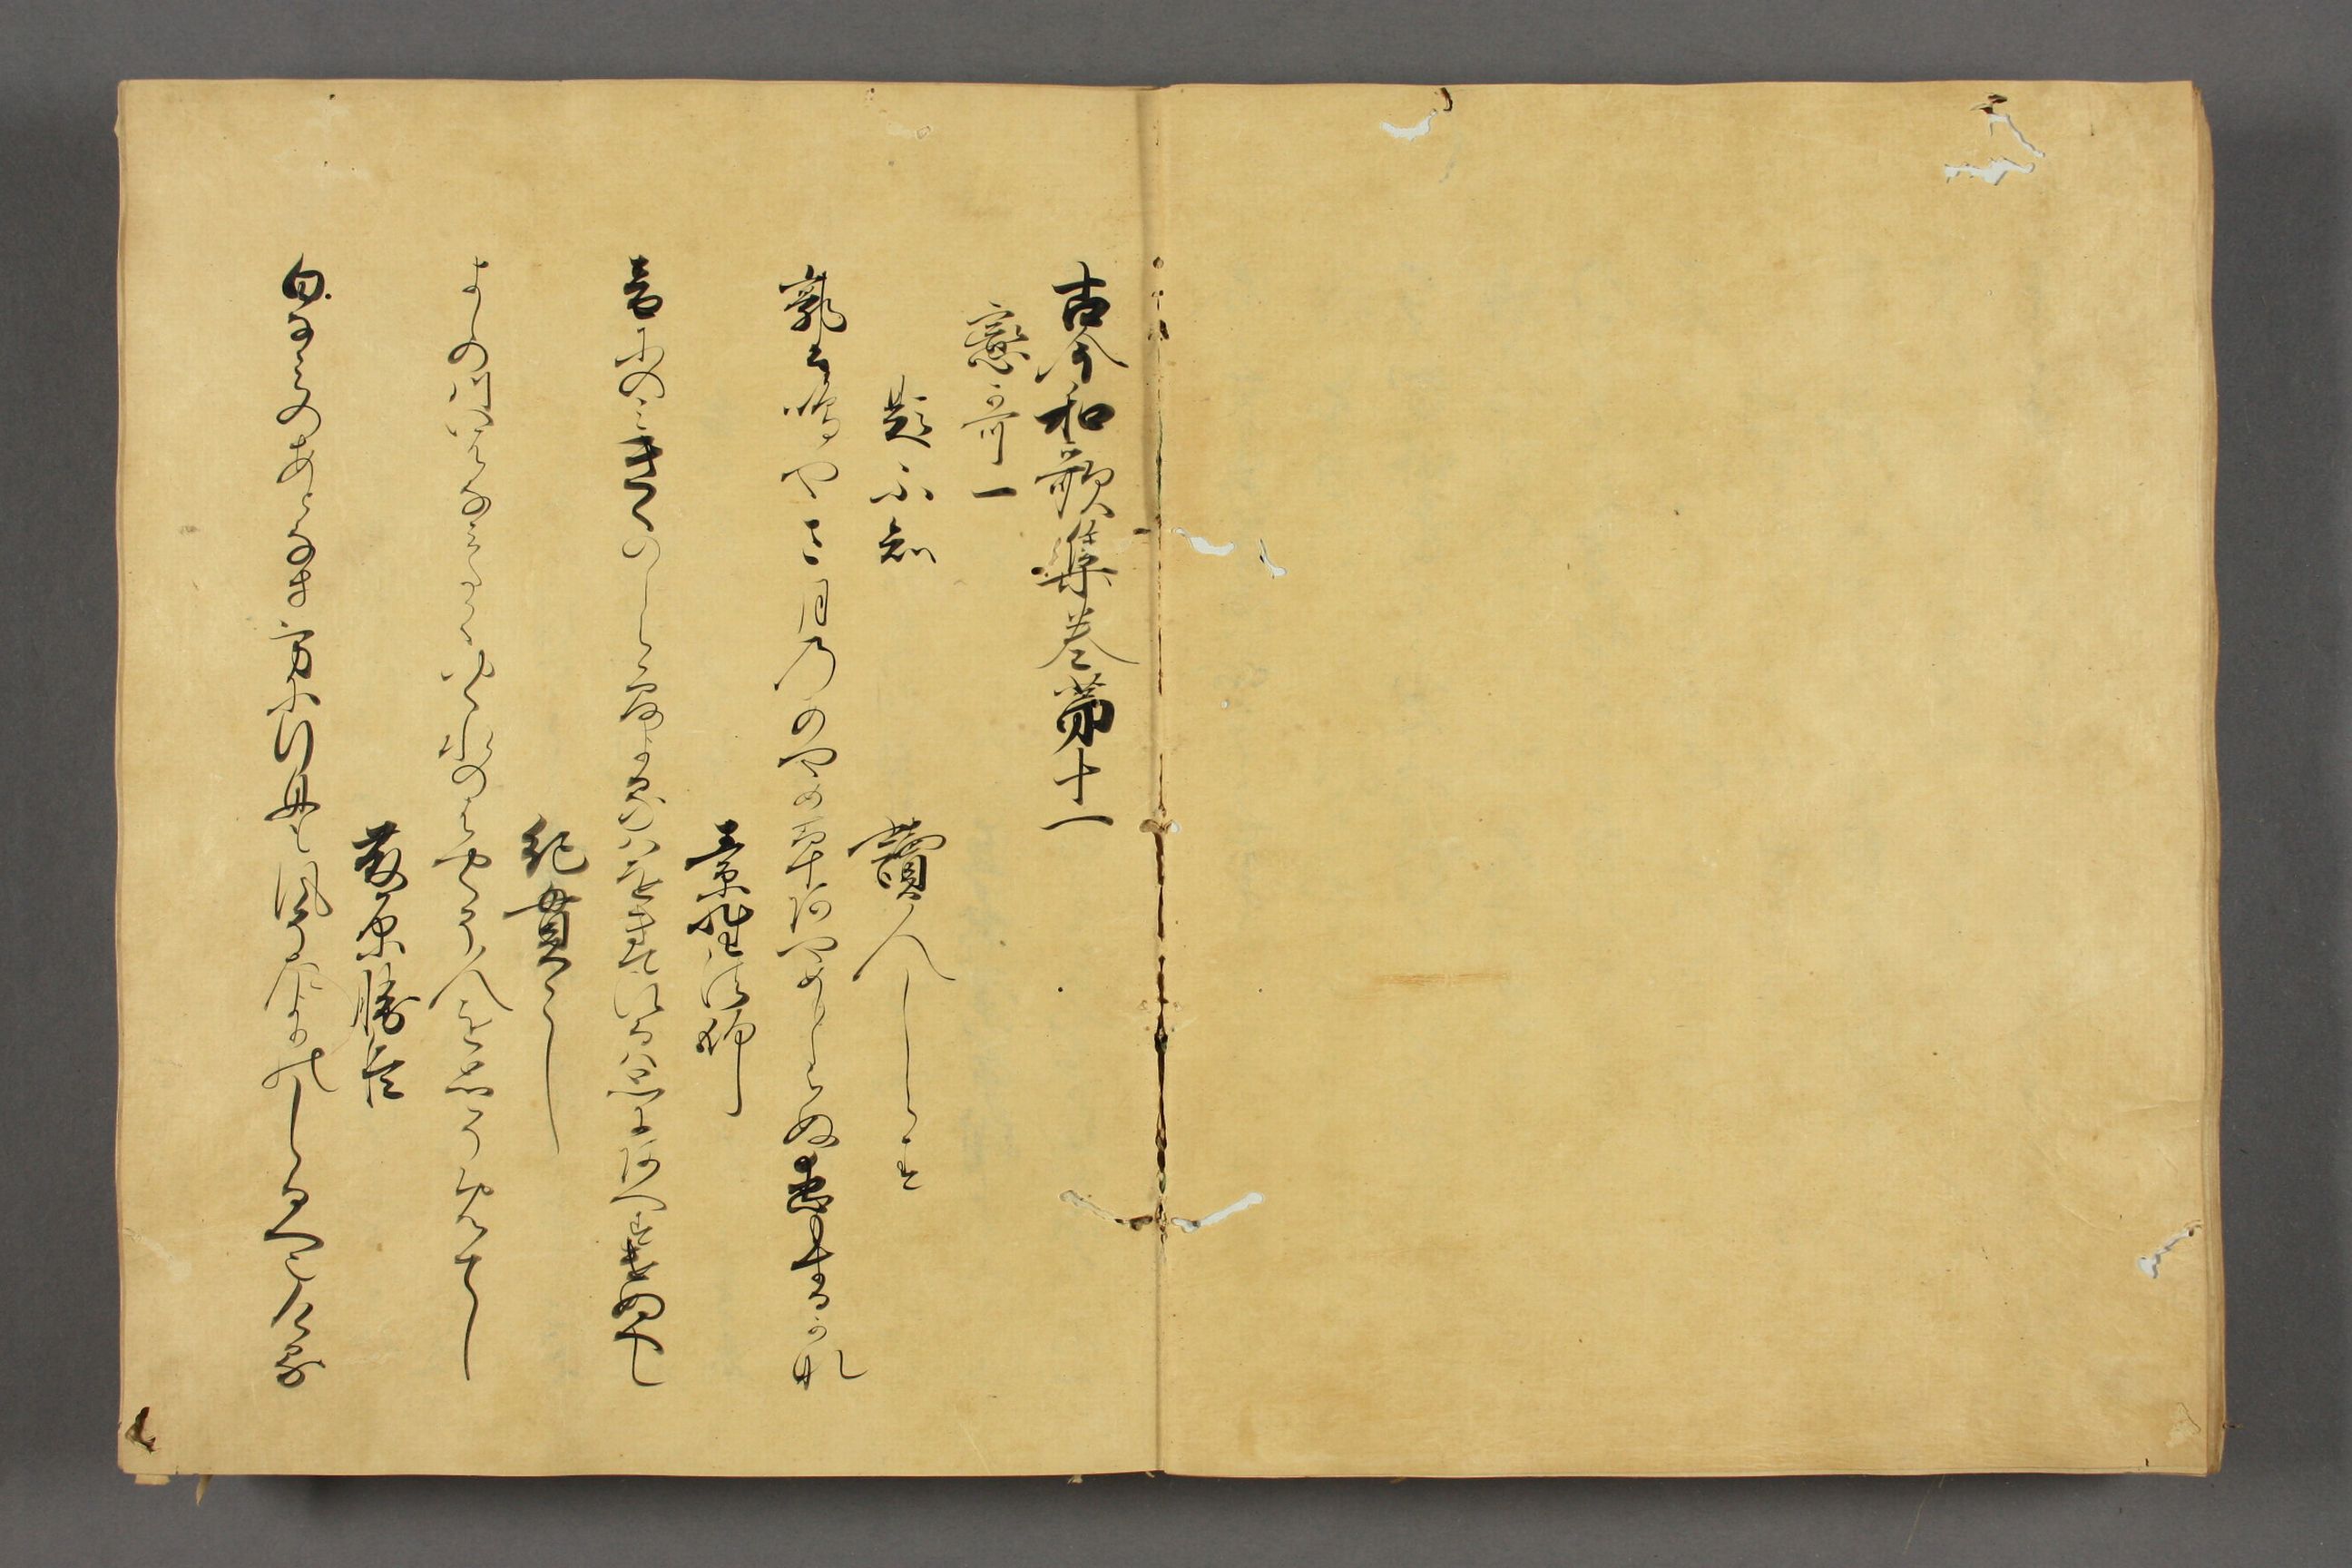 古今和歌集巻第十一
戀哥一
題不知
讀人しらす
郭公鳴や五月のあやめ草あやめもしらぬ恋もするかな
素性法師
音にのみきくのしら露よるはおきてひるは思にあへすけぬへし
紀貫之
よしの川いはなみたかく行水のはやくそ人を思そめてし
藤原勝臣
白なみのあとなき方に行舟も風そたよりのしるへなりける